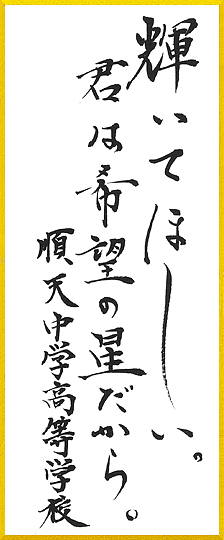 輝いてほしい。
君は希望の星だから。
順天中学高等学校